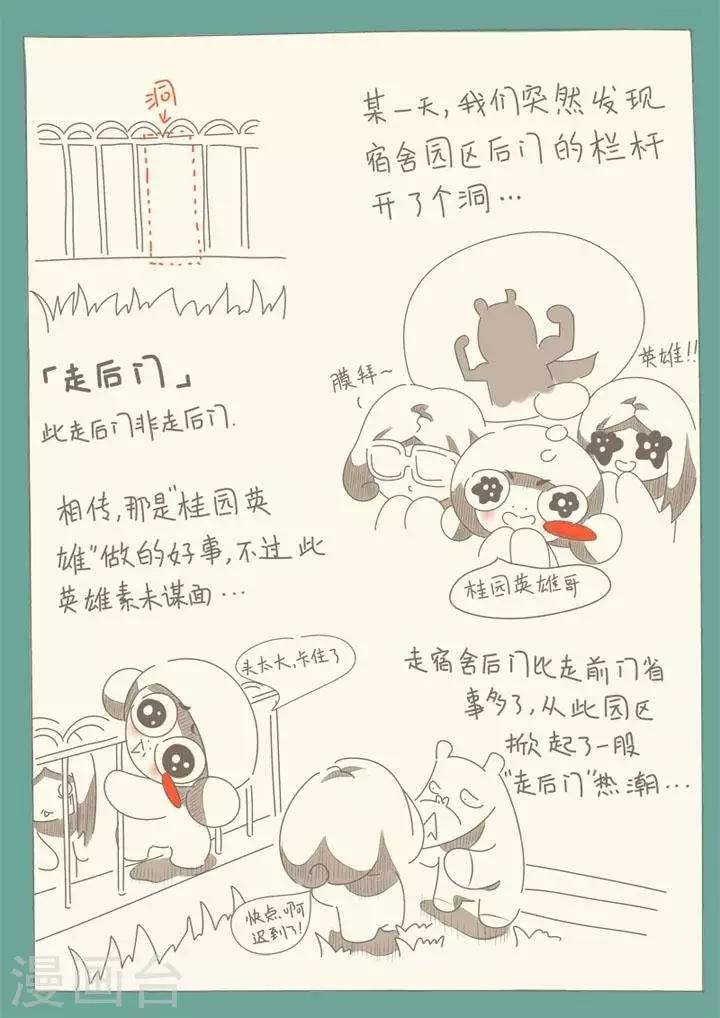 洞
某一天,我们突然发现
宿舍园区后门的栏杆
开了个洞…
「走后门」
此走后门非走后门.
膜拜~
英雄!!
相传,那是"桂园英
雄"做的好事,不过此
英雄素未谋面…
桂园英雄哥
头太大,卡住了
走宿舍后门比走前门省
事多了,从此园区
掀起了一股
"走后门"热潮…
快点啊
迟到了!
漫画台